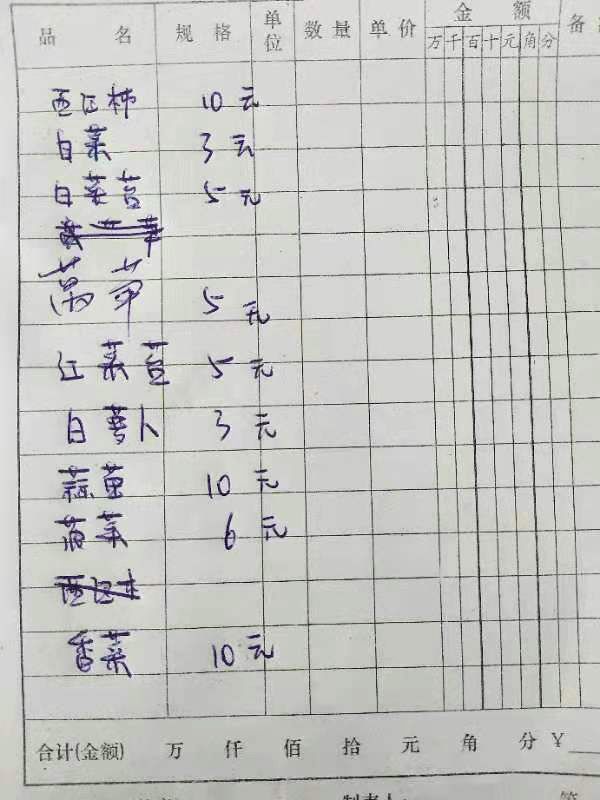 品 名 规 格 单位 数 量 单 价 金 额 备
万 千 百 十 元 角 分
西红柿 10元
白菜 3元
白菜苔 5元
莴笋 5元
红菜苔 5元
白萝卜 3元
蒜苗 10元
菠菜 6元
香菜 10元
合计(金额) 万 仟 佰 拾 元 角 分 ¥